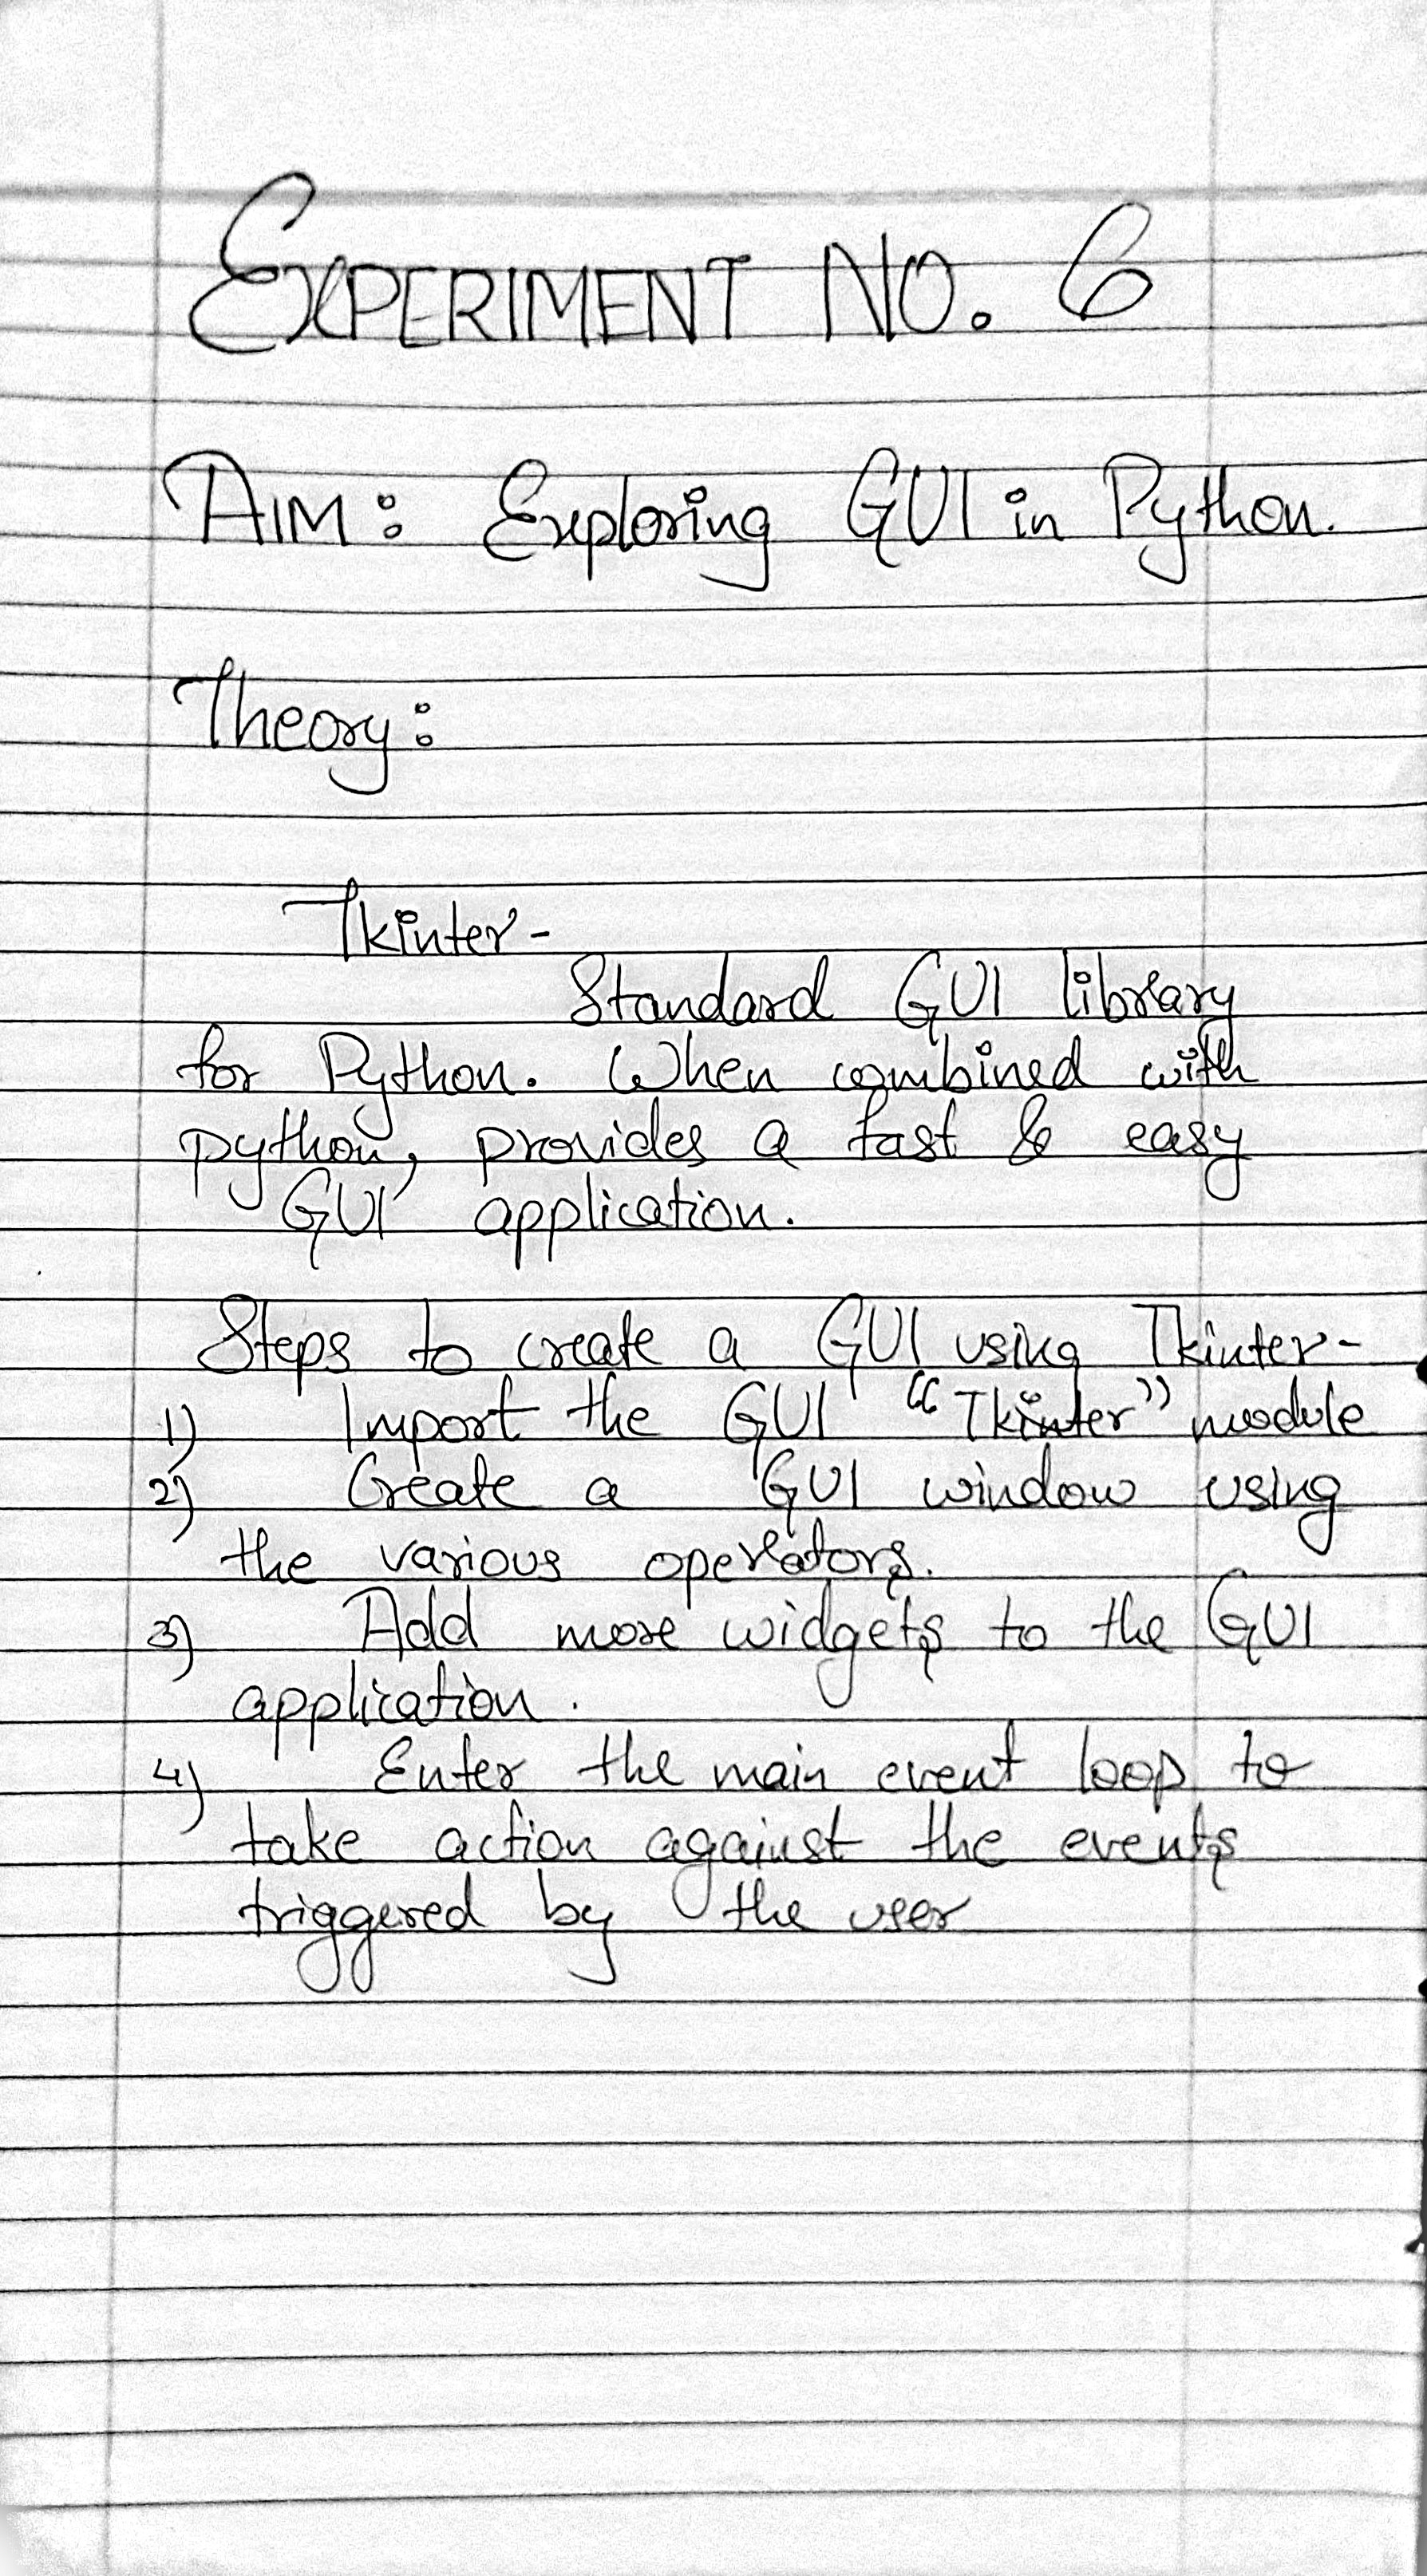 EXPERIMENT NO. 6
AIM: Exploring GUI in Python.
Theory:
Tkinter-
Standard GUI library
for Python. When combined with
python, provides a fast & easy
GUI application.
Steps to create a GUI using Tkinter-
1) Import the GUI "Tkinter" module
2) Create a GUI window using
the various operators.
3) Add more widgets to the GUI
application.
4) Enter the main event loop to
take action against the events
triggered by the user